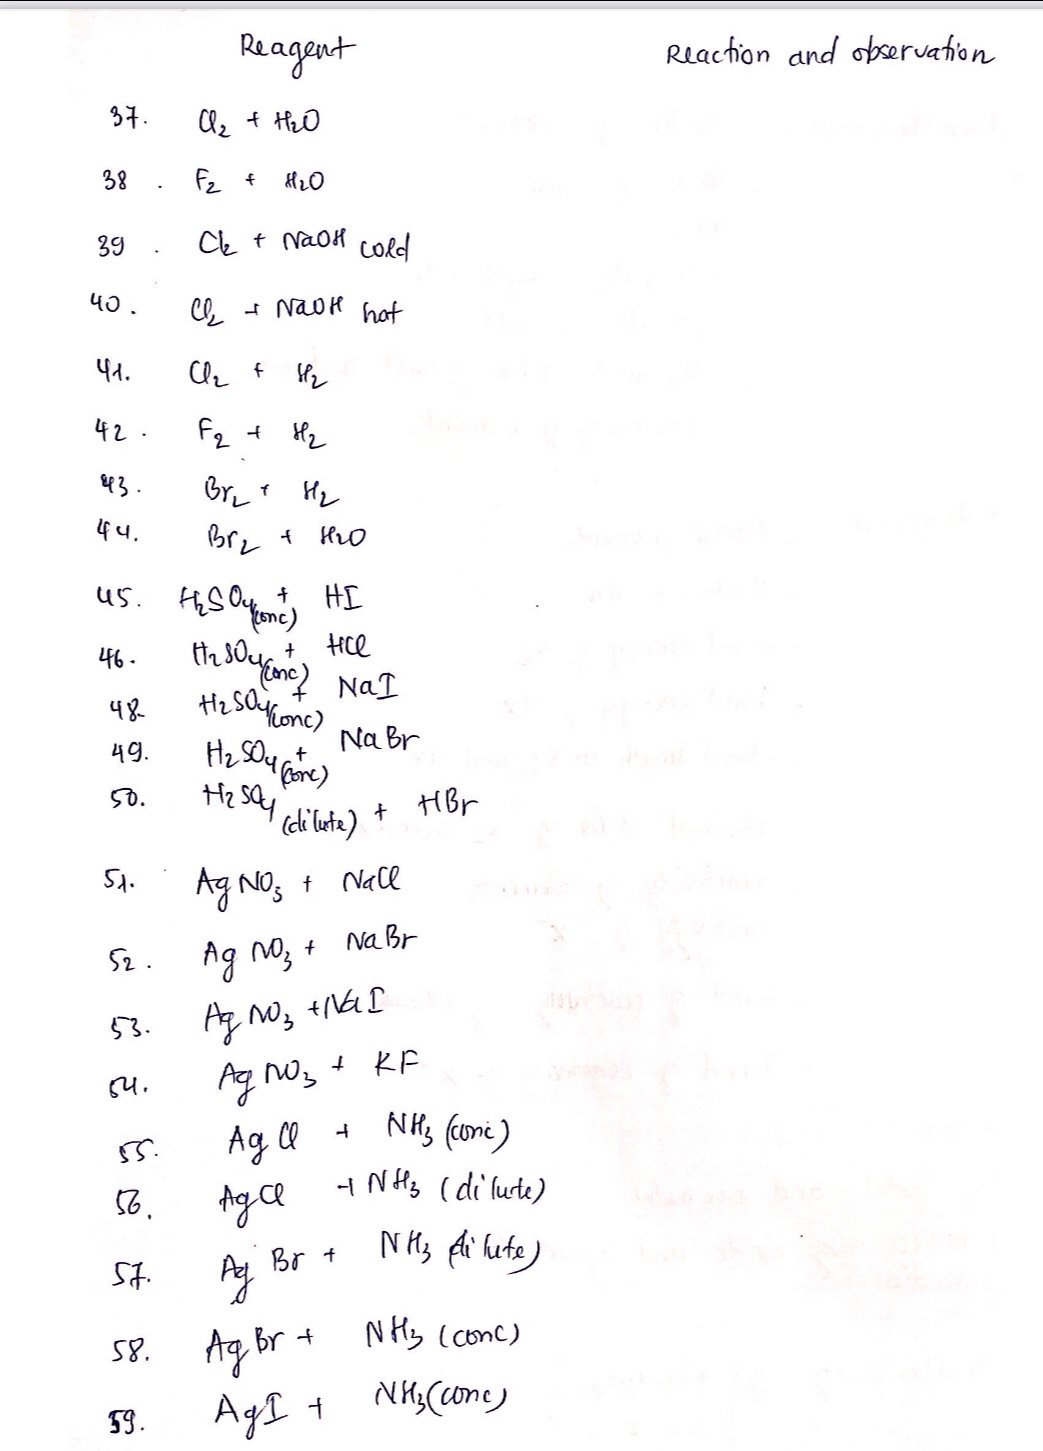 Reagent Reaction and observation
37. Cl₂ + H₂O
38. F₂ + H₂O
39. Cl₂ + NaOH cold
40. Cl₂ + NaOH hot
41. Cl₂ + H₂
42. F₂ + H₂
43. Br₂ + H₂
44. Br₂ + H₂O
45. H₂SO₄(conc) + HI
46. H₂SO₄(conc) + HCl
48. H₂SO₄(conc) + NaI
49. H₂SO₄(conc) + NaBr
50. H₂SO₄ (dilute) + HBr
51. AgNO₃ + NaCl
52. AgNO₃ + NaBr
53. AgNO₃ + NaI
54. AgNO₃ + KF
55. AgCl + NH₃ (conc)
56. AgCl + NH₃ (dilute)
57. AgBr + NH₃ dilute)
58. AgBr + NH₃ (conc)
59. AgI + NH₃(conc)